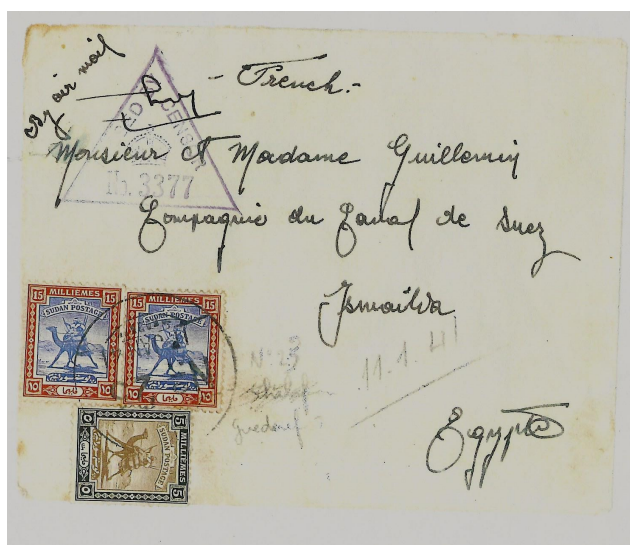 By air mail
- French.-
FIELD CENSOR
No. 3377
Monsieur et Madame Guillemin
Compagnie du Canal de Suez
Ismaïlia
Egypte
11.1.41
15 MILLIÈMES 15
SUDAN POSTAGE
١٥ ١٥
15 MILLIÈMES 15
SUDAN POSTAGE
١٥ ١٥
5 MILLIEMES 5
SUDAN POSTAGE